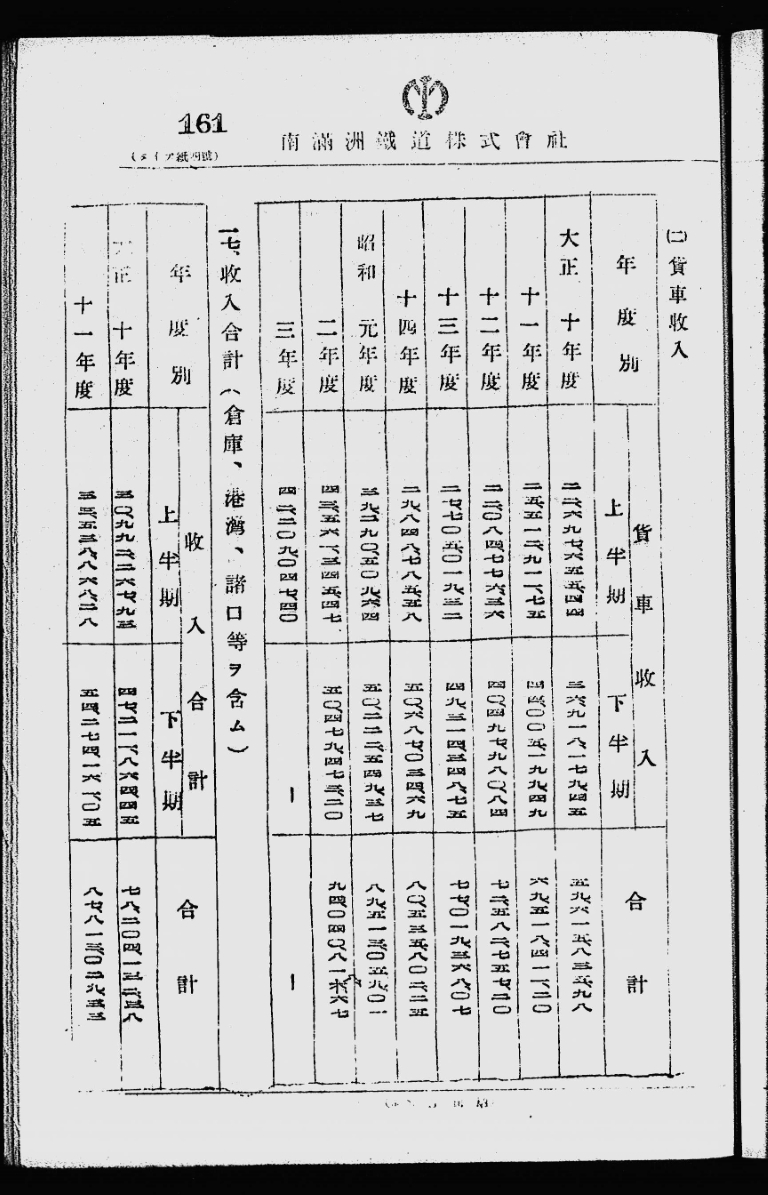 161
南滿洲鐵道株式會社
(タイプ紙四號)
㈡貨車收入
年度別 貨車收入 合計
上半期 下半期
大正 十年度 三六九一八一七九四五 五九六一五八三五九八
十一年度 二五五一二九二一七五 四四〇〇五一九九四九
十二年度 三二〇八四七七六三六 四〇四九七九八〇八四 七二五八二七五七二〇
十三年度 二七七〇五〇一九三二 四九三一四三四八七五 七七〇一九三六八〇七
十四年度 二九八四八七八五五八 五〇六八七〇三四六九
昭和 元年度 三九二九〇五〇九六四 五〇二二二五四九三七 八九五一三〇五九〇一
二年度 四三五六一三四五四七 五〇四七九四七三二〇 九四〇四〇八一八六七
三年度 四二二〇九〇四七四〇 ー ー
一七、收入合計(倉庫、港灣、諸口等ヲ含ム)
年度別 收入合計 合計
上半期 下半期
大正 十年度 三〇九九二二六七九三 四七二一一八六四四五 七八二〇四一三二三八
十一年度 三三五三八八六八二八 五四二七四一六一〇五 八七八一三〇二九三三